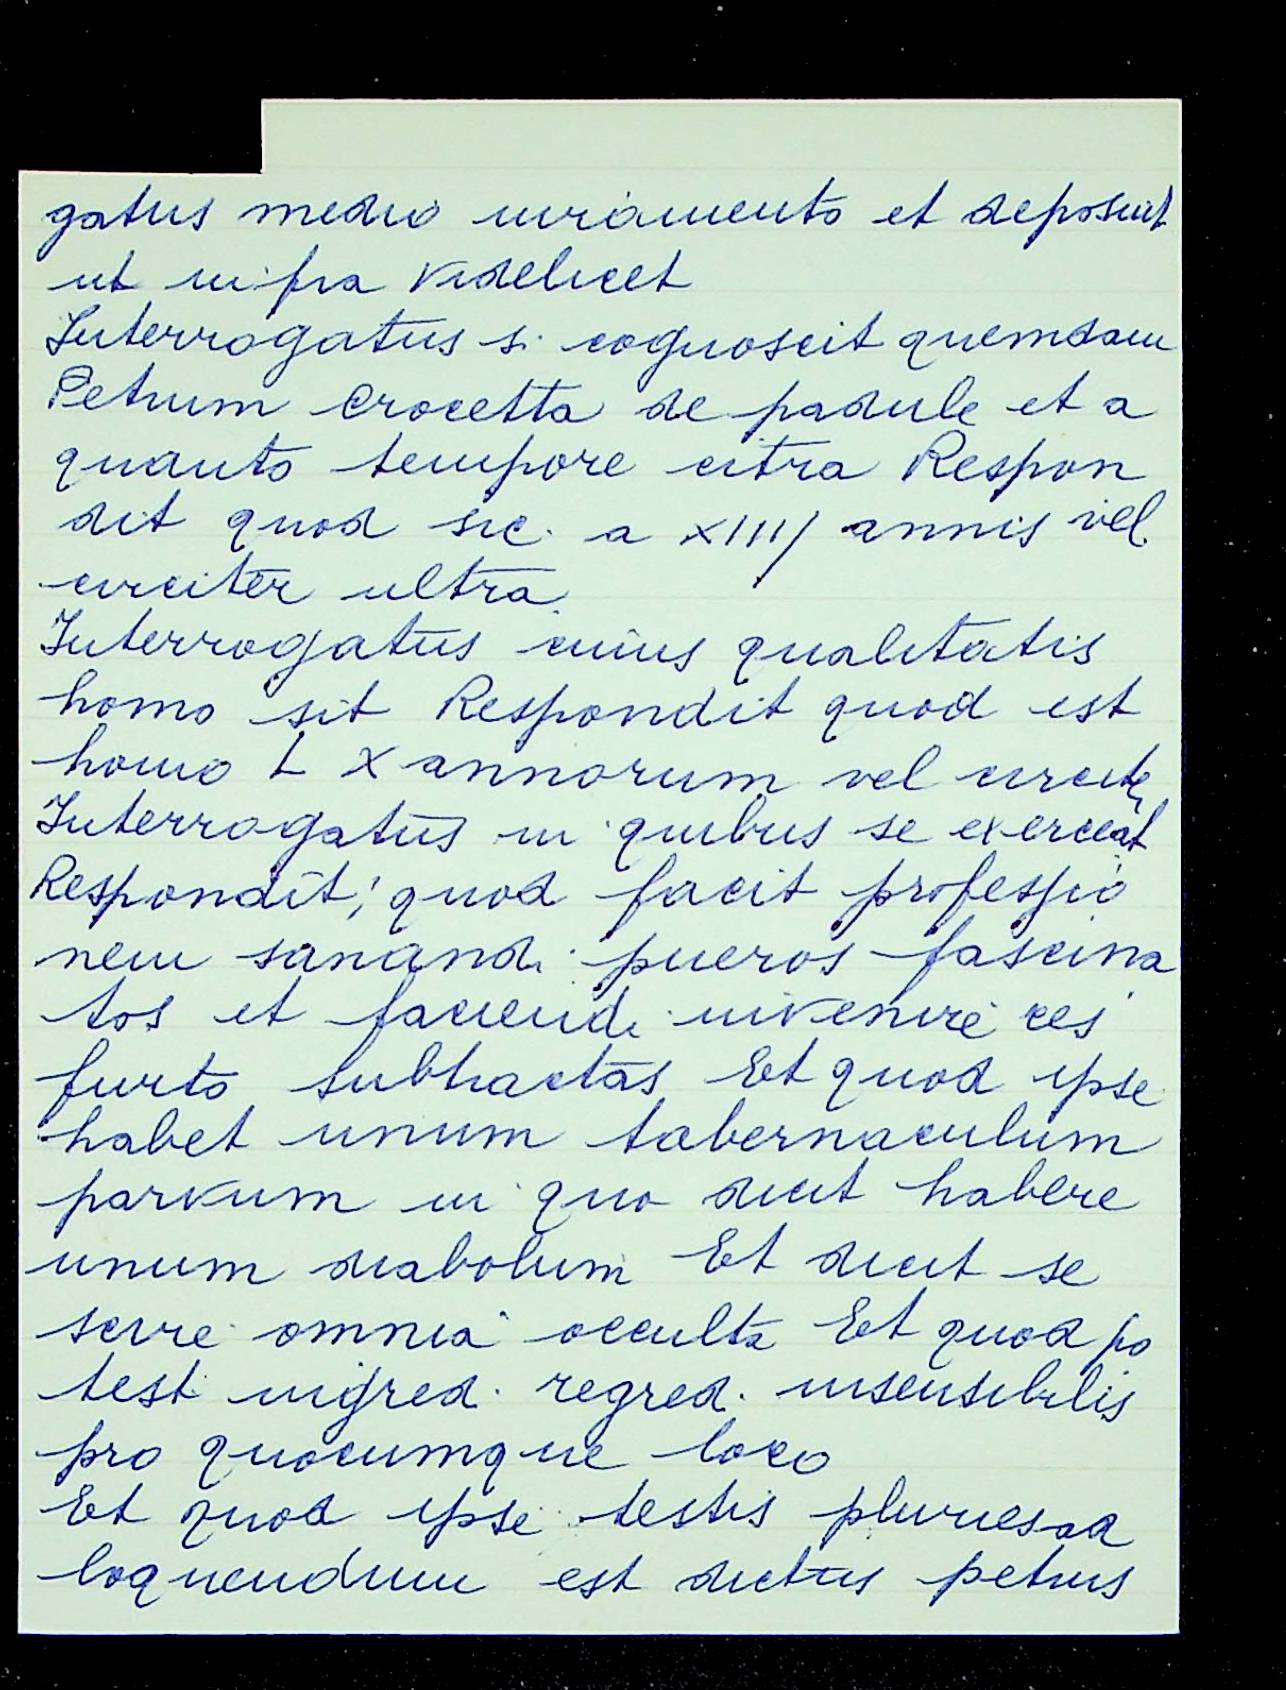 gatus medio iuramento et deposuit
ut infra videlicet
Interrogatus si cognoscit quemdam
Petrum Crocetta de padule et a
quanto tempore citra Respon
dit quod sic. a XIII/ annis vel
circiter ultra.
Interrogatus cuius qualitatis
homo sit Respondit quod est
homo L X annorum vel circiter
Interrogatus in quibus se exerceat
Respondit, quod facit professio
nem sanandi pueros fascina
tos et faciendi invenire res
furto subtractas Et quod ipse
habet unum tabernaculum
parvum in quo dicit habere
unum diabolum Et dicit se
scire omnia occulta Et quod po
test ingred. regred. insensibilis
pro quocumque loco
Et quod ipse testis pluries ad
loquendum est dictus petrus